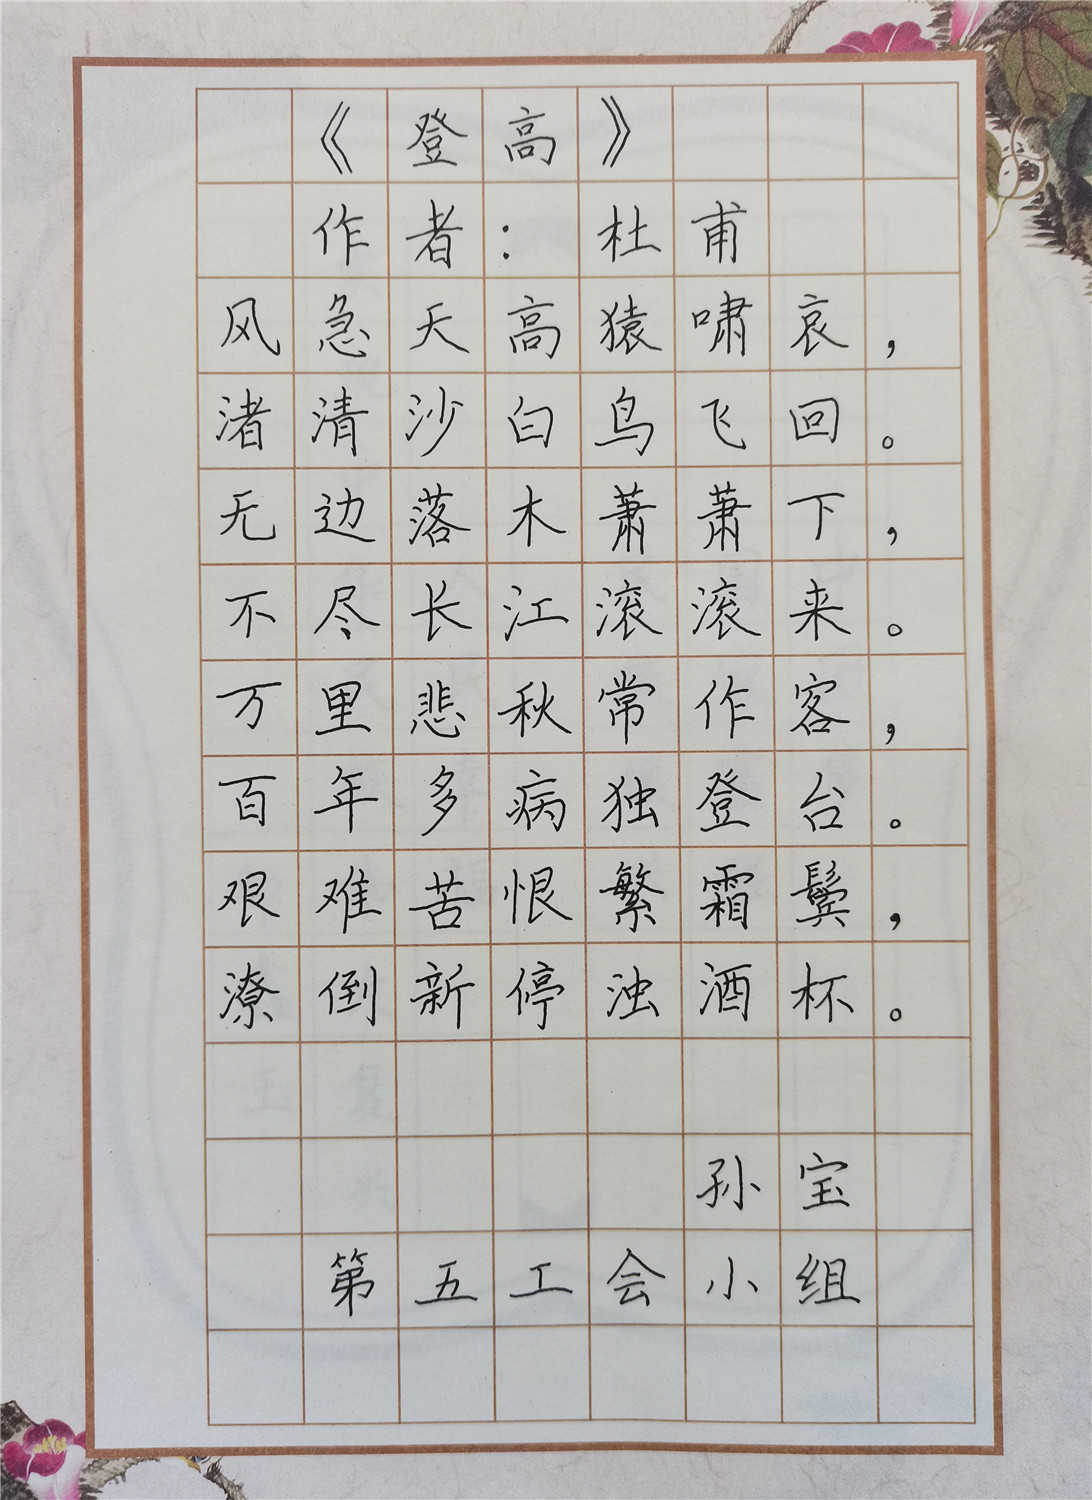 《登高》
作者：杜甫
风急天高猿啸哀，
渚清沙白鸟飞回。
无边落木萧萧下，
不尽长江滚滚来。
万里悲秋常作客，
百年多病独登台。
艰难苦恨繁霜鬓，
潦倒新停浊酒杯。
孙宝
第五工会小组